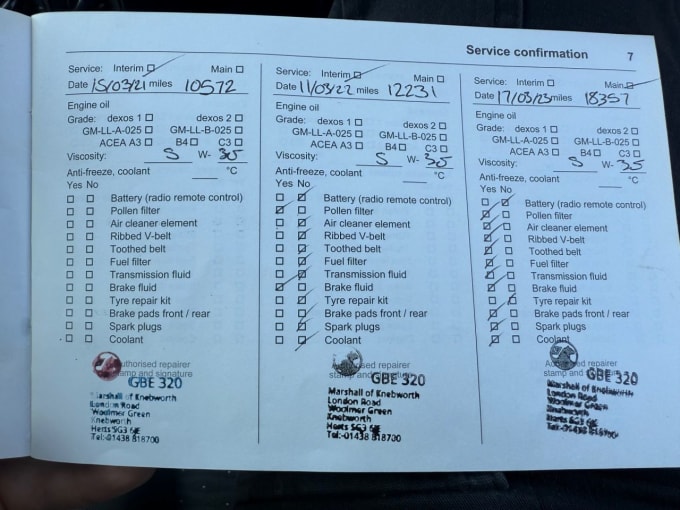 Service confirmation 7
Service: Interim Main
Date 15/03/21 miles 10572
Engine oil
Grade: dexos 1 dexos 2
GM-LL-A-025 GM-LL-B-025
ACEA A3 B4 C3
Viscosity: 5 W- 30
Anti-freeze, coolant °C
Yes No
Battery (radio remote control)
Pollen filter
Air cleaner element
Ribbed V-belt
Toothed belt
Fuel filter
Transmission fluid
Brake fluid
Tyre repair kit
Brake pads front / rear
Spark plugs
Coolant
Authorised repairer
stamp and signature
GBE 320
Marshall of Knebworth
London Road
Woolmer Green
Knebworth
Herts SG3 6JE
Tel:-01438 818700
Service: Interim Main
Date 11/03/22 miles 12231
Engine oil
Grade: dexos 1 dexos 2
GM-LL-A-025 GM-LL-B-025
ACEA A3 B4 C3
Viscosity: 5 W- 30
Anti-freeze, coolant °C
Yes No
Battery (radio remote control)
Pollen filter
Air cleaner element
Ribbed V-belt
Toothed belt
Fuel filter
Transmission fluid
Brake fluid
Tyre repair kit
Brake pads front / rear
Spark plugs
Coolant
repairer
stamp and
GBE 320
Marshall of Knebworth
London Road
Woolmer Green
Knebworth
Herts SG3
Tel:-01438 818700
Service: Interim Main
Date 17/03/23 miles 18357
Engine oil
Grade: dexos 1 dexos 2
GM-LL-A-025 GM-LL-B-025
ACEA A3 B4 C3
Viscosity: 5 W- 30
Anti-freeze, coolant °C
Yes No
Battery (radio remote control)
Pollen filter
Air cleaner element
Ribbed V-belt
Toothed belt
Fuel filter
Transmission fluid
Brake fluid
Tyre repair kit
Brake pads front / rear
Spark plugs
Coolant
repairer
stamp and
GBE 320
Marshall of Knebworth
London Road
Woolmer Green
Knebworth
Herts SG3
Tel:-01438 818700